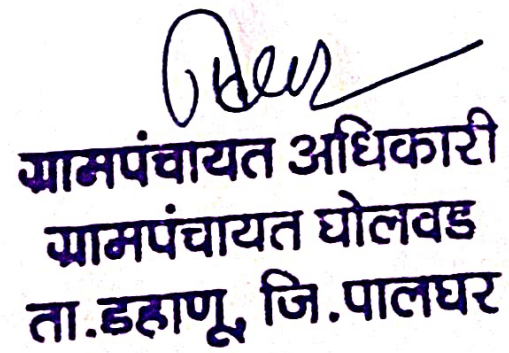 ग्रामपंचायत अधिकारी
ग्रामपंचायत घोलवड
ता.डहाणू, जि.पालघर